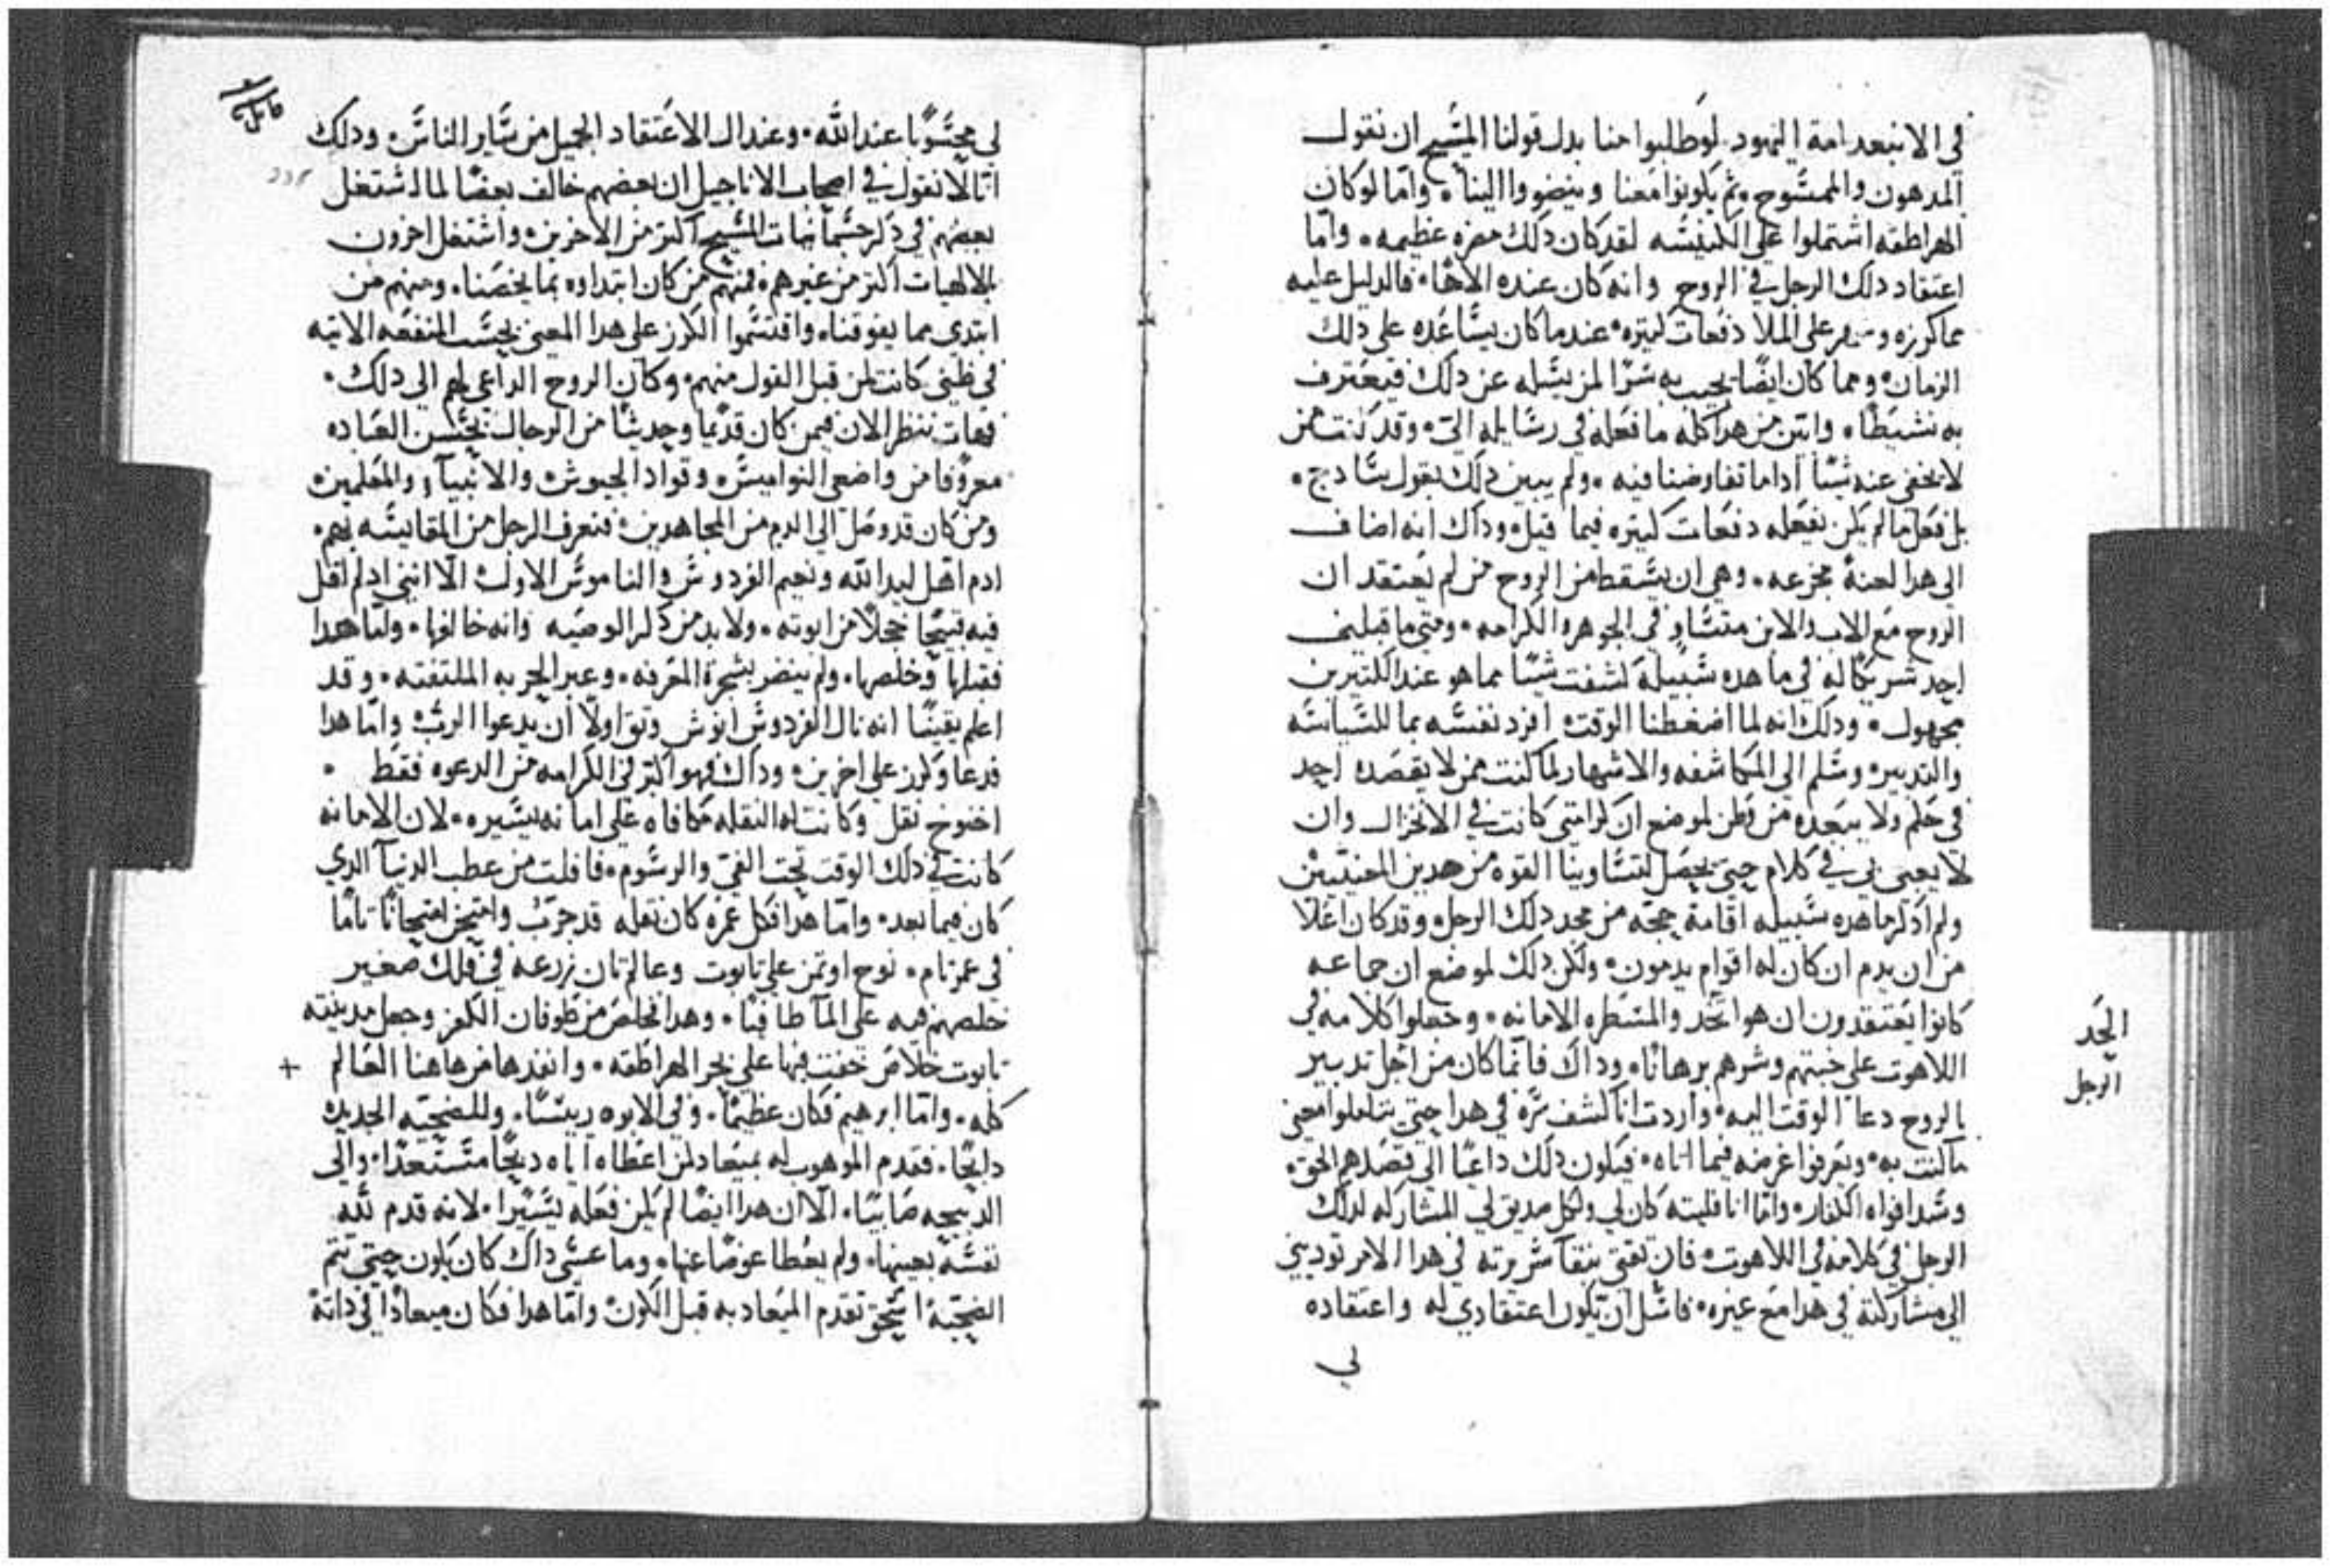 في الانبعد امة اليهود لو طلبوا منا بدل قولنا المسيح ان نقول
المدهون والممسوح ثم يكونوا معنا وينضووا الينا ۰ واما لو كان
الهراطقه اشتملوا على الكنيسه لقد كان دلك مضره عظيمه ۰ واما
اعتقاد دلك الرجل في الروح وانه كان عنده الاها ۰ فالدليل عليه
مما كرزه على الملا دفعات كتيره ۰ عندما كان يساعده على دلك
الزمان ۰ ومما كان ايضًا يجيب به سرًا لمن يسله عن دلك فيعترف
به نشيطًا ۰ وابين من هدا كله ما فعله في رسايله الي ۰ وقد كنت ممن
لا يخفي عنه شيًا ادا ما تفاوضنا فيه ۰ ولم يبين دلك بقول سادج ۰
بل فعل ما لم يكن يفعله دفعات كتيره فيما قبل ۰ وداك انه اضاف
الى هدا لعنة مجزعه ۰ وهي ان يسقط من الروح من لم يعتقد ان
الروح مع الاب والابن متساو في الجوهر والكرامه ۰ ومتى ما قبلني
احد شريكًا له في ما هده سبيله كشفت شيًا مما هو عند الكتيرين
مجهول ۰ ودلك انه لما اضغطنا الوقت افرد نفسه بما للسياسه
والتدبير ۰ وسلم الي المكاشفه والاشهار لما كنت ممن لا يقصده احد
في حكم ولا يبعده من وطن لموضع ان كرامتي كانت في الانخزال وان
لا يعبى بي في كلام حتى يحصل لتساوينا القوه من هدين المعنيين
ولم ادكر ما هده سبيله اقامة حجه من مجد دلك الرجل ۰ وقد كان اعلا
من ان يدم ان كان له اقوام يدمون ۰ ولكن دلك لموضع ان جماعه
كانوا يعتقدون ان هوا الحد والمسطره الامانه ۰ وجعلوا كلامه في
اللاهوت على خبتهم وشرهم برهانًا ۰ وداك فانما كان من اجل تدبير
بالروح دعا الوقت اليه ۰ واردت ان اكشف سره في هدا حتى يتاملوا معنى
ما كتب به ۰ ويعرفوا غرضه فيما اتاه ۰ فيكون دلك داعيًا الى قصدهم الحق ۰
وسد افواه الكفار ۰ واما انا فليته كان لي ولكل صديق لي المشاركه لدلك
الرجل في كلامه في اللاهوت ۰ فان تقتي بنقا سريرته في هدا الامر توديني
الى مشاركته في هدا مع غيره ۰ فاسل ان يكون اعتقادي له واعتقاده
لي
الحَد
الرجل
لي محسوبًا عند الله ۰ وعند ال الاعتقاد الجميل من ساير الناس ۰ ودلك
اننا لا نقول في اصحاب الاناجيل ان بعضهم خالف بعضًا لما اشتغل
بعضهم في دكر جسمانيات المسيح اكتر من الاخرين ۰ واشتغل اخرون
بالالهيات اكتر من غيرهم ۰ فمنهم من كان ابتداوه بما يخصنا ۰ ومنهم من
ابتدي مما يفوقنا ۰ واقتسموا الكرز على هدا المعنى بحسب المنفعه الاتيه
في ظني كانت لمن قبل القول منهم ۰ وكان الروح الداعي لهم الى دلك ۰
فهات ننظر الان فيمن كان قديمًا وحديثًا من الرجال بحسن العباده
معروفا من واضعي النواميس وقواد الجيوش والانبيآء والمعلمين
ومن كان قد وصل الى الدم من المجاهدين ۰ فنعرف الرجل من المقايسه بهم ۰
ادم اهل ليد الله ونعيم الفردوس والناموس الاول ۰ الا انني اد لم اقل
فيه قبيحًا خجلًا من ابوته ۰ ولا بد من دكر الوصيه وانه خالفها ۰ ولما هدا
فقبلها وخلصها ۰ ولم ينضر بشجرة المعرفه ۰ وعبر الحربه الملتفته ۰ وقد
اعلم يقينًا انه نال الفردوس انوش وتق اولًا ان يدعوا الرب ۰ واما هدا
فدعا وكرز على اخرين ۰ وداك فهو اكتر في الكرامه من الدعوه فقط ۰
اخنوخ نقل وكانت له النقله مكافاه على امانه يسيره ۰ لان الامانه
كانت في دلك الوقت تحت الفي والرسوم ۰ فافلت من عطب الدنيا الدي
كان فيما بعد ۰ واما هدا فكل عمره كان نقله قد جرب وامتحن امتحانًا تامًا
في عمر تام ۰ نوح اوتمن على تابوت وعالم تان زرعه في فلك صغير
خلصهم فيه على المآ طافيًا ۰ وهدا تخلص من طوفان الكفر وجعل مدينته
تابوت خلاص خفت فيها على بحر الهراطقه ۰ وانفدها من هاهنا العالم
كله ۰ واما ابرهيم فكان عظيمًا ۰ وفي الابوه رييسًا ۰ وللضحيه الجديده
دابحًا ۰ فقدم الموهوب له بميعاد لمن اعطاه اياه دبحًا مستعدًا ۰ والى
الدبيحه صابيًا ۰ الا ان هدا ايضًا لم يكن فعله يسيرًا ۰ لانه قدم لله
نفسه بعينها ۰ ولم يعطا عوضًا عنها ۰ وما عسى داك كان يكون حتى تتم
الضحية اسحق تقدم الميعاد به قبل الكون ۰ واما هدا فكان ميعادًا في داته
+